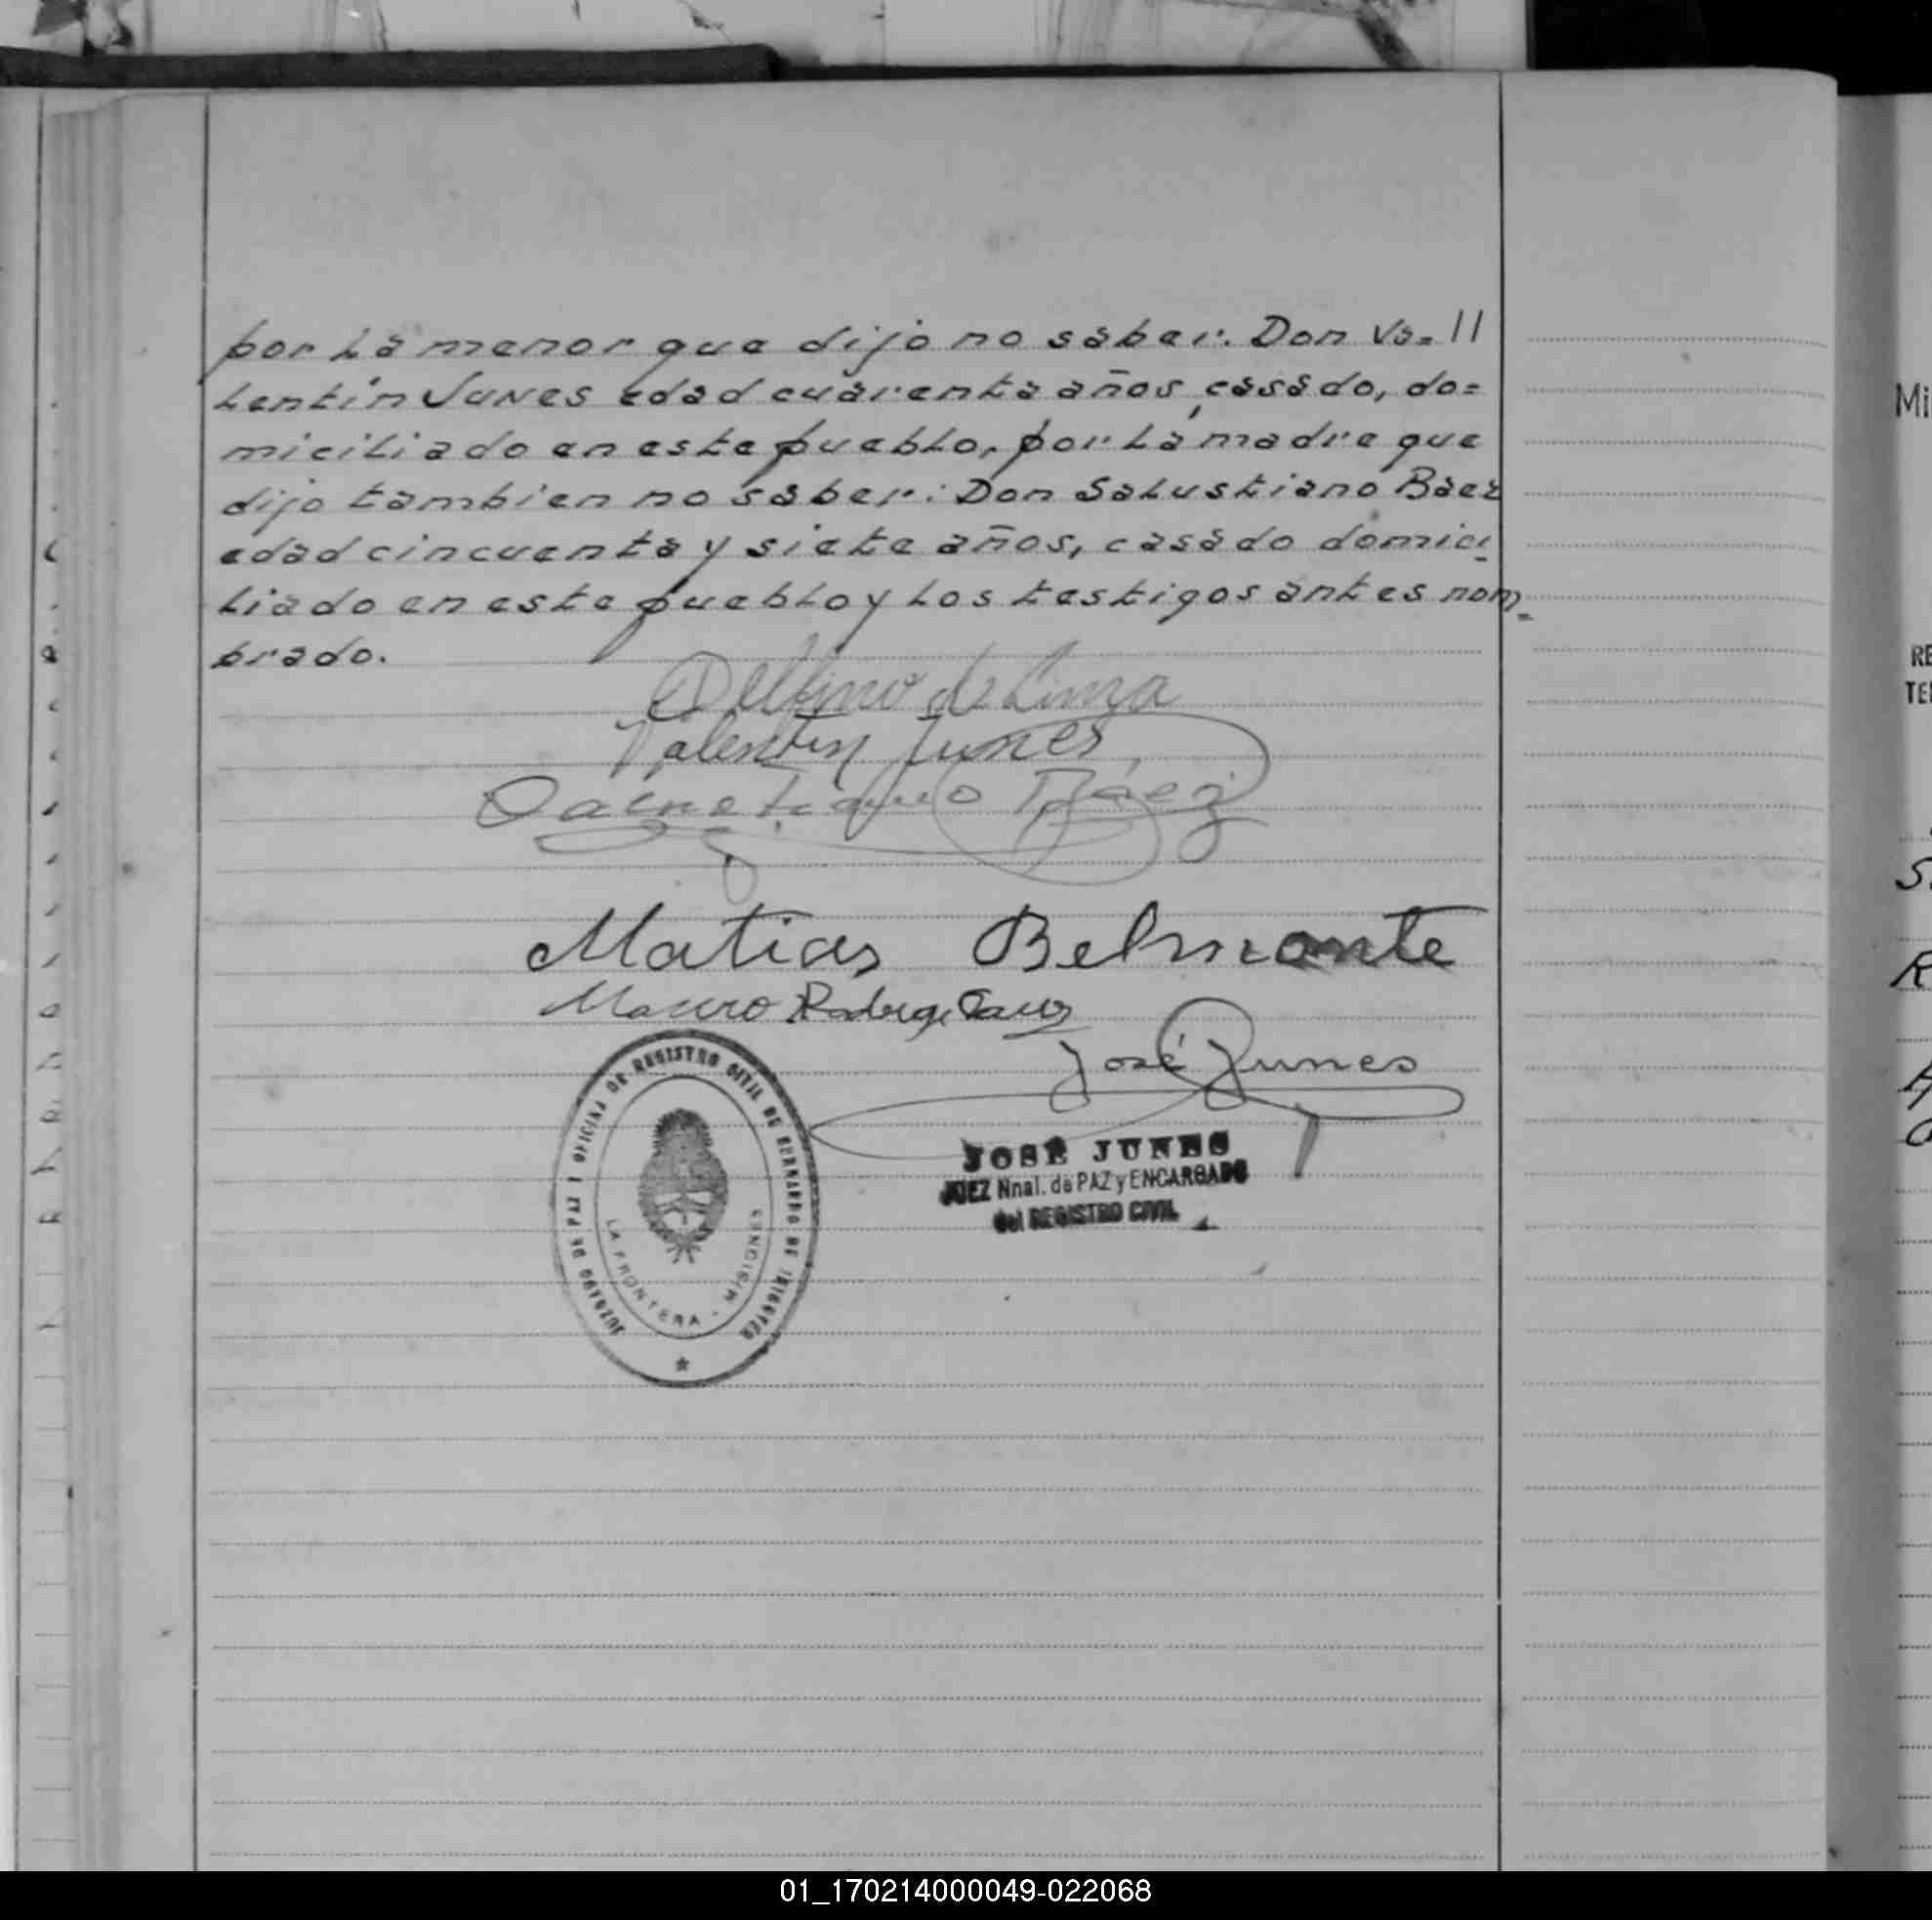 por la menor que dijo no saber. Don Va=//
lentín Junes edad cuarenta años, casado, do=
miciliado en este pueblo, por la madre que
dijo tambien no saber: Don Salustiano Báez
edad cincuenta y siete años, casado domici
liado en este pueblo y los testigos antes nom=
brado.
Delfino de Lima
Valentin Junes
Salustiano Báez
Matias Belmonte
Mauro
José Junes
JUZGADO DE PAZ Y OFICINA DE REGISTRO CIVIL DE BERNARDO DE IRIGOYEN
LA FRONTERA - MISIONES
JOSÉ JUNES
JUEZ Nnal. de PAZ y ENCARGADO
del REGISTRO CIVIL
Mi
RE
TE
01_170214000049-022068